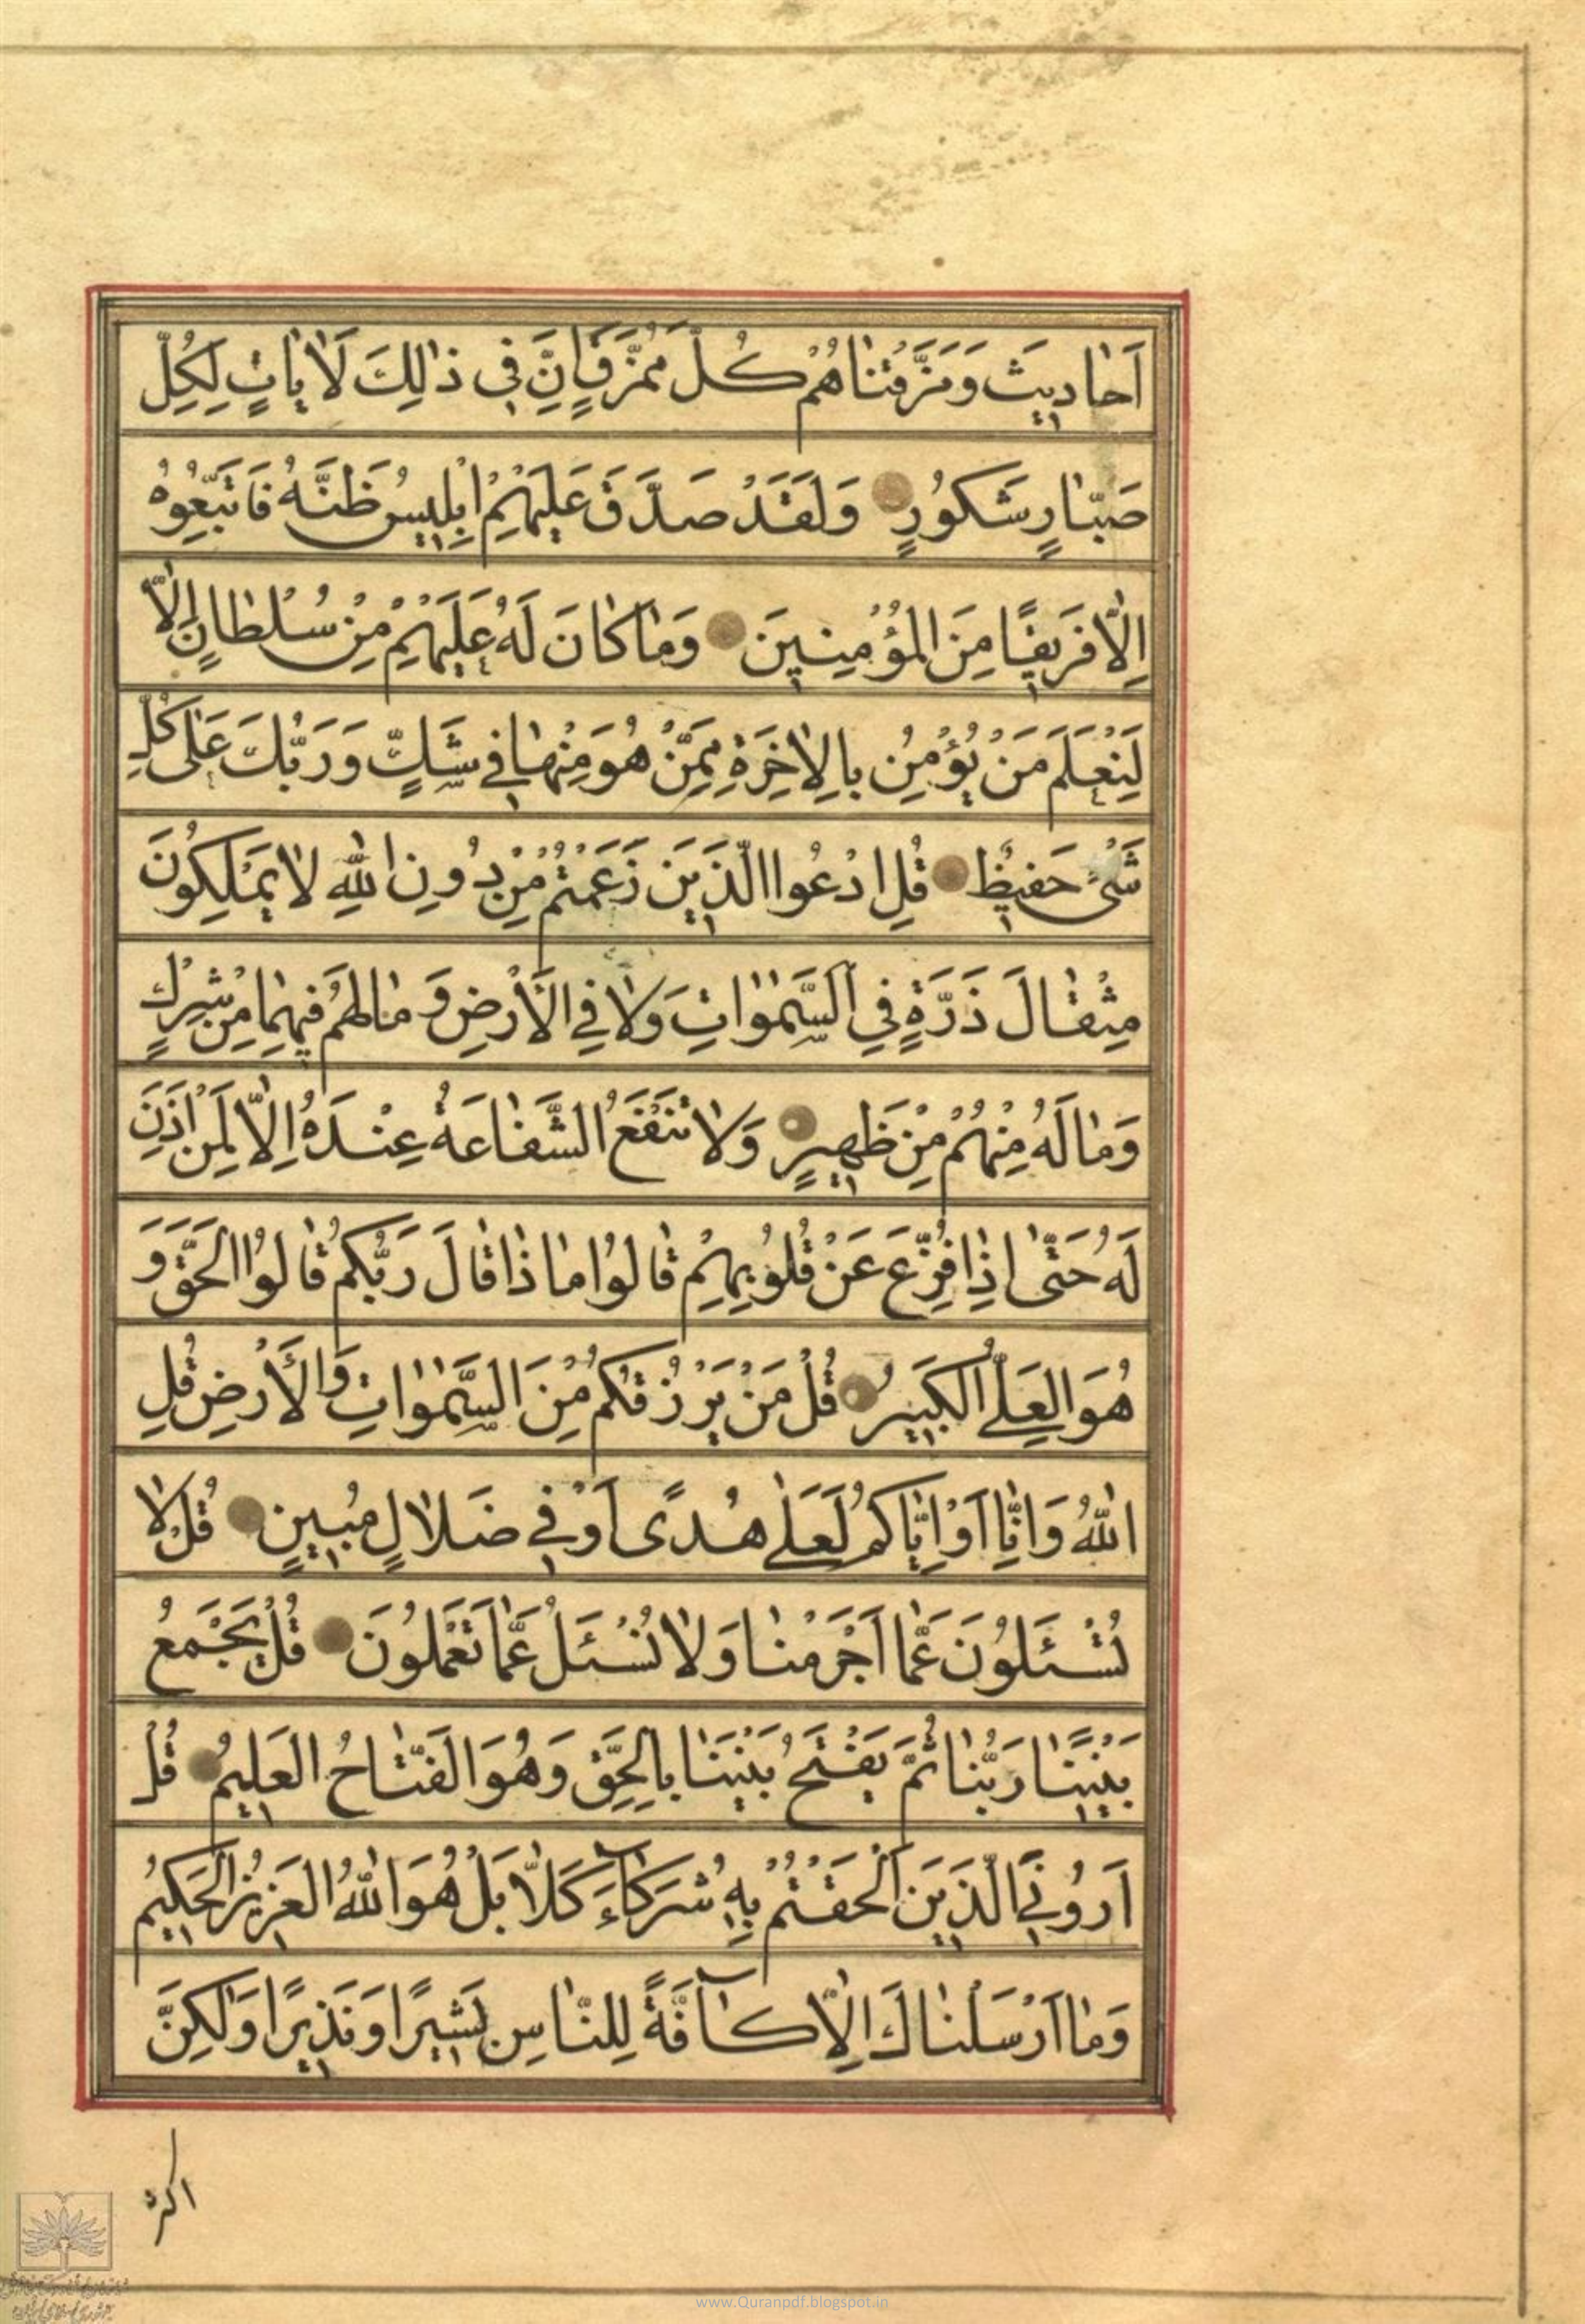 اَحٰادِيثَ وَمَزَّقْنٰاهُمْ كُلَّ مُمَزَّقٍ اِنَّ فِي ذٰلِكَ لَاٰيٰاتٍ لِكُلِّ
صَبّٰارٍ شَكُورٍ وَلَقَدْ صَدَّقَ عَلَيْهِمْ اِبْلِيسُ ظَنَّهُ فَاتَّبَعُوهُ
اِلّٰا فَرِيقًا مِنَ الْمُؤْمِنِينَ وَمٰا كٰانَ لَهُ عَلَيْهِمْ مِنْ سُلْطٰانٍ اِلّٰا
لِنَعْلَمَ مَنْ يُؤْمِنُ بِالْاٰخِرَةِ مِمَّنْ هُوَ مِنْهٰا فِي شَكٍّ وَرَبُّكَ عَلٰى كُلِّ
شَيْءٍ حَفِيظٌ قُلِ ادْعُوا الَّذِينَ زَعَمْتُمْ مِنْ دُونِ اللّٰهِ لٰا يَمْلِكُونَ
مِثْقٰالَ ذَرَّةٍ فِي السَّمٰوٰاتِ وَلٰا فِي الْاَرْضِ وَمٰا لَهُمْ فِيهِمٰا مِنْ شِرْكٍ
وَمٰا لَهُ مِنْهُمْ مِنْ ظَهِيرٍ وَلٰا تَنْفَعُ الشَّفٰاعَةُ عِنْدَهُ اِلّٰا لِمَنْ اَذِنَ
لَهُ حَتّٰى اِذٰا فُزِّعَ عَنْ قُلُوبِهِمْ قٰالُوا مٰاذٰا قٰالَ رَبُّكُمْ قٰالُوا الْحَقَّ وَ
هُوَ الْعَلِيُّ الْكَبِيرُ قُلْ مَنْ يَرْزُقُكُمْ مِنَ السَّمٰوٰاتِ وَالْاَرْضِ قُلِ
اللّٰهُ وَاِنّٰا اَوْ اِيّٰاكُمْ لَعَلٰى هُدًى اَوْ فِي ضَلٰالٍ مُبِينٍ قُلْ لٰا
تُسْئَلُونَ عَمّٰا اَجْرَمْنٰا وَلٰا نُسْئَلُ عَمّٰا تَعْمَلُونَ قُلْ يَجْمَعُ
بَيْنَنٰا رَبُّنٰا ثُمَّ يَفْتَحُ بَيْنَنٰا بِالْحَقِّ وَهُوَ الْفَتّٰاحُ الْعَلِيمُ قُلْ
اَرُونِيَ الَّذِينَ اَلْحَقْتُمْ بِهِ شُرَكٰاءَ كَلّٰا بَلْ هُوَ اللّٰهُ الْعَزِيزُ الْحَكِيمُ
وَمٰا اَرْسَلْنٰاكَ اِلّٰا كٰآفَّةً لِلنّٰاسِ بَشِيرًا وَنَذِيرًا وَلٰكِنَّ
اكثر
www.Quranpdf.blogspot.in